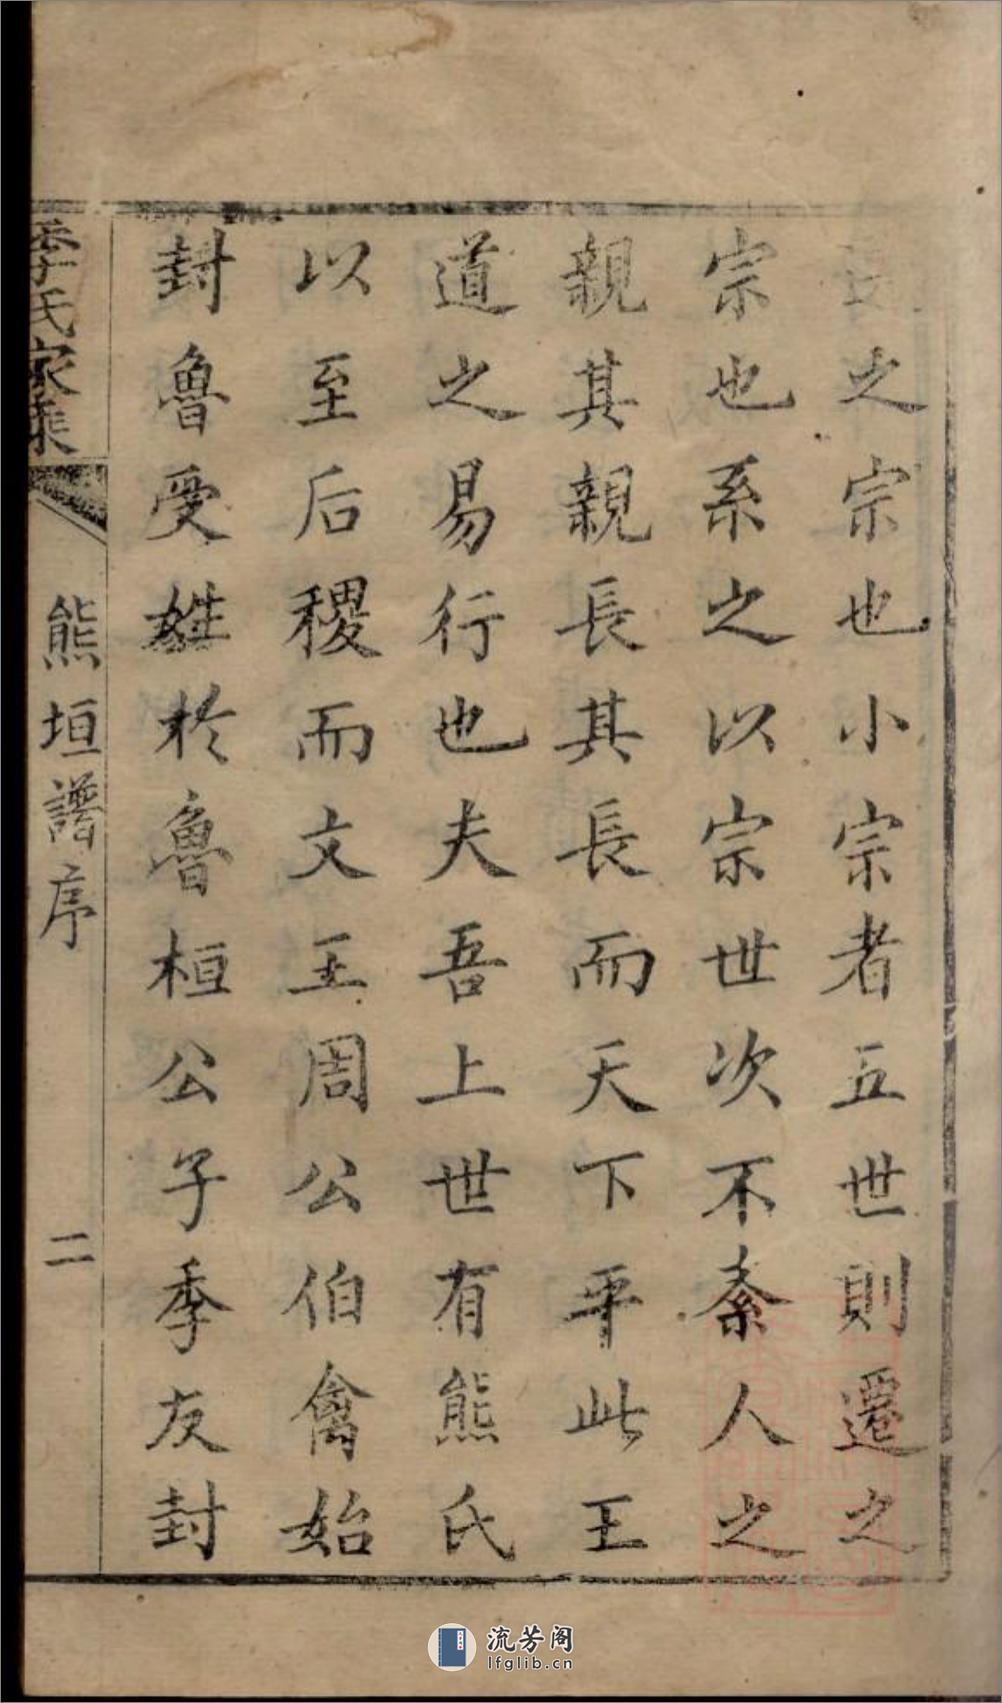 之宗也小宗者五世則遷之
宗也系之以宗世次不紊人之
親其親長其長而天下平此王
道之易行也夫吾上世有熊氏
以至后稷而文王周公伯禽始
封魯受姓於魯桓公子季友封
季氏家乘
熊垣譜序
二
流芳阁
lfglib.cn